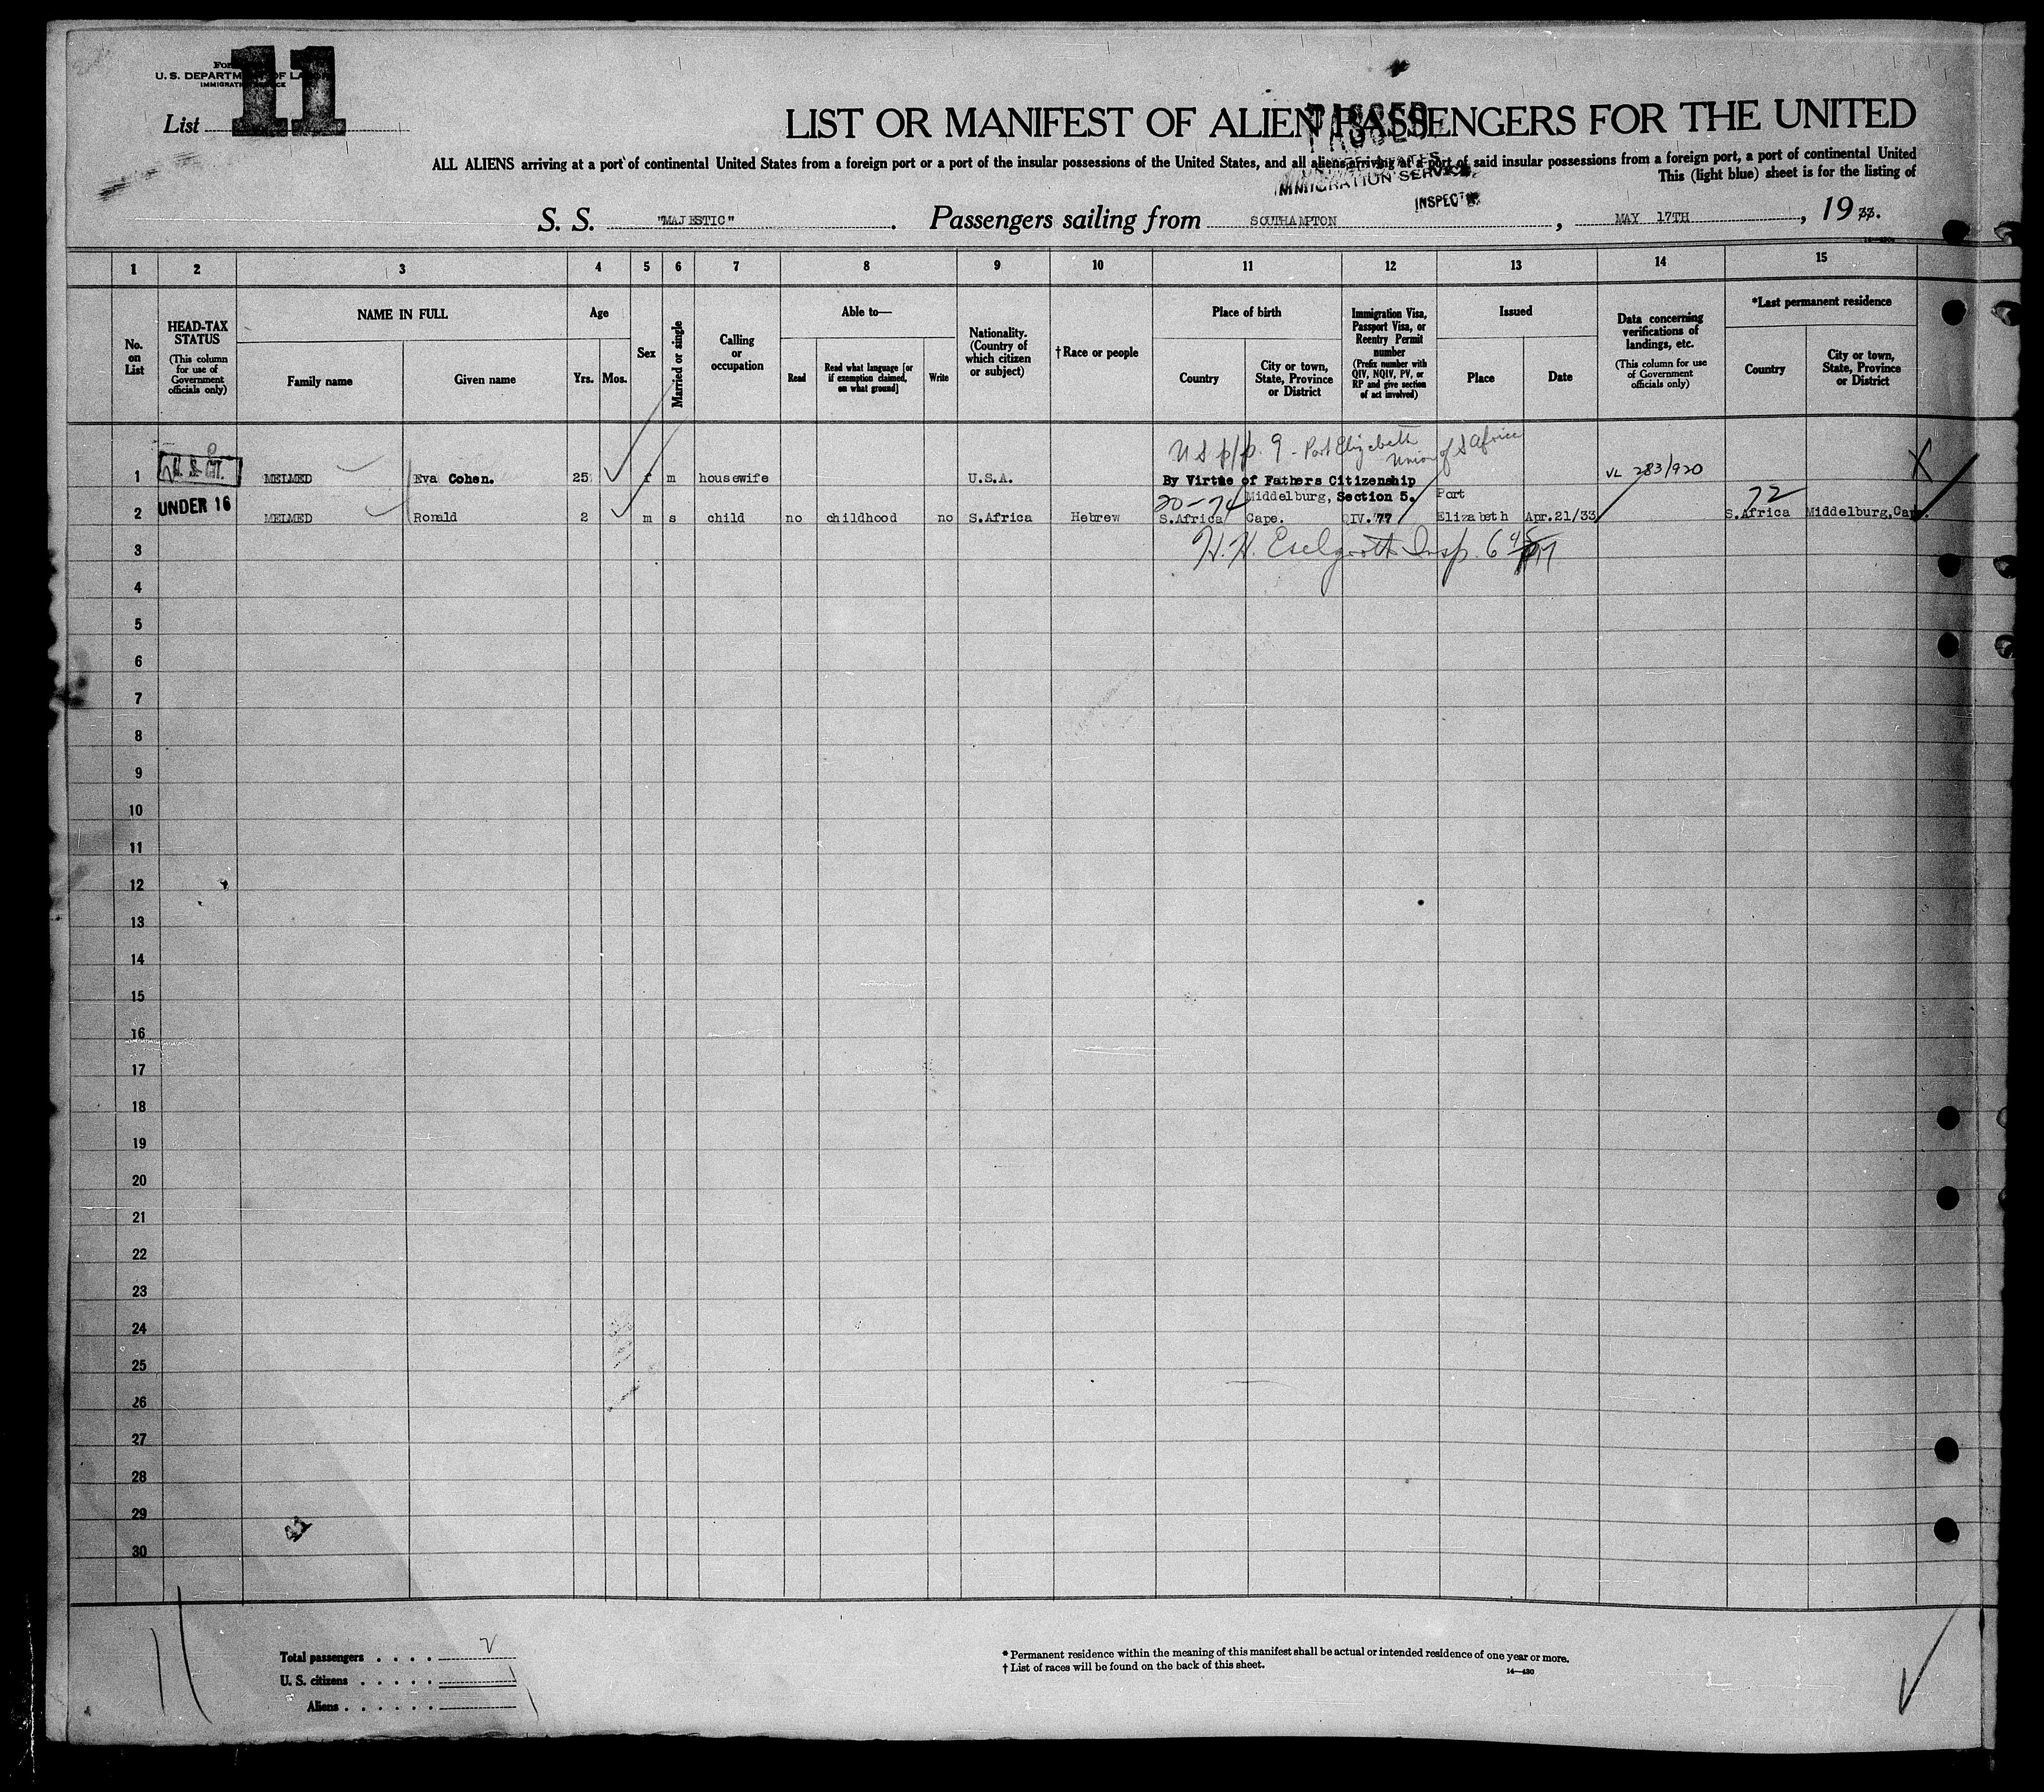 11
U. S. DEPARTMENT OF LABOR
IMMIGRATION SERVICE
List
LIST OR MANIFEST OF ALIEN PASSENGERS FOR THE UNITED
PASSED
ALL ALIENS arriving at a port of continental United States from a foreign port or a port of the insular possessions of the United States, and all aliens arriving at a port of said insular possessions from a foreign port, a port of continental United
This (light blue) sheet is for the listing of
IMMIGRATION SERVICE
INSPECTOR
S. S. "MAJESTIC". Passengers sailing from SOUTHAMPTON, MAY 17TH, 1933.
1 2 3 4 5 6 7 8 9 10 11 12 13 14 15
No. on List
HEAD-TAX STATUS
(This column for use of Government officials only)
NAME IN FULL
Family name
Given name
Age
Yrs. Mos.
Sex
Married or single
Calling or occupation
Able to—
Read
Read what language [or if exemption claimed, on what ground]
Write
Nationality. (Country of which citizen or subject)
†Race or people
Place of birth
Country
City or town, State, Province or District
Immigration Visa, Passport Visa, or Reentry Permit number
(Prefix number with QIV, NQIV, PV, or RP and give section of act involved)
Issued
Place
Date
Data concerning verifications of landings, etc.
(This column for use of Government officials only)
*Last permanent residence
Country
City or town, State, Province or District
U S p/p. 9 - Port Elizabeth
Union of S Africa
1 U. S. CIT. MELMED Eva Cohen. 25 f m housewife U.S.A. By Virtue of Fathers Citizenship VL 283/920 X
20-74 Middelburg, Section 5. Port 72
2 UNDER 16 MELMED Ronald 2 m s child no childhood no S.Africa Hebrew S.Africa Cape. QIV.77 Elizabeth Apr.21/33 S.Africa Middelburg,Cape.
3 H. H. Insp. 6 45 PM
4
5
6
7
8
9
10
11
12
13
14
15
16
17
18
19
20
21
22
23
24
25
26
27
28
29
30
Total passengers . . . .
U. S. citizens . . . . .
Aliens . . . . . .
* Permanent residence within the meaning of this manifest shall be actual or intended residence of one year or more.
† List of races will be found on the back of this sheet.
14—430